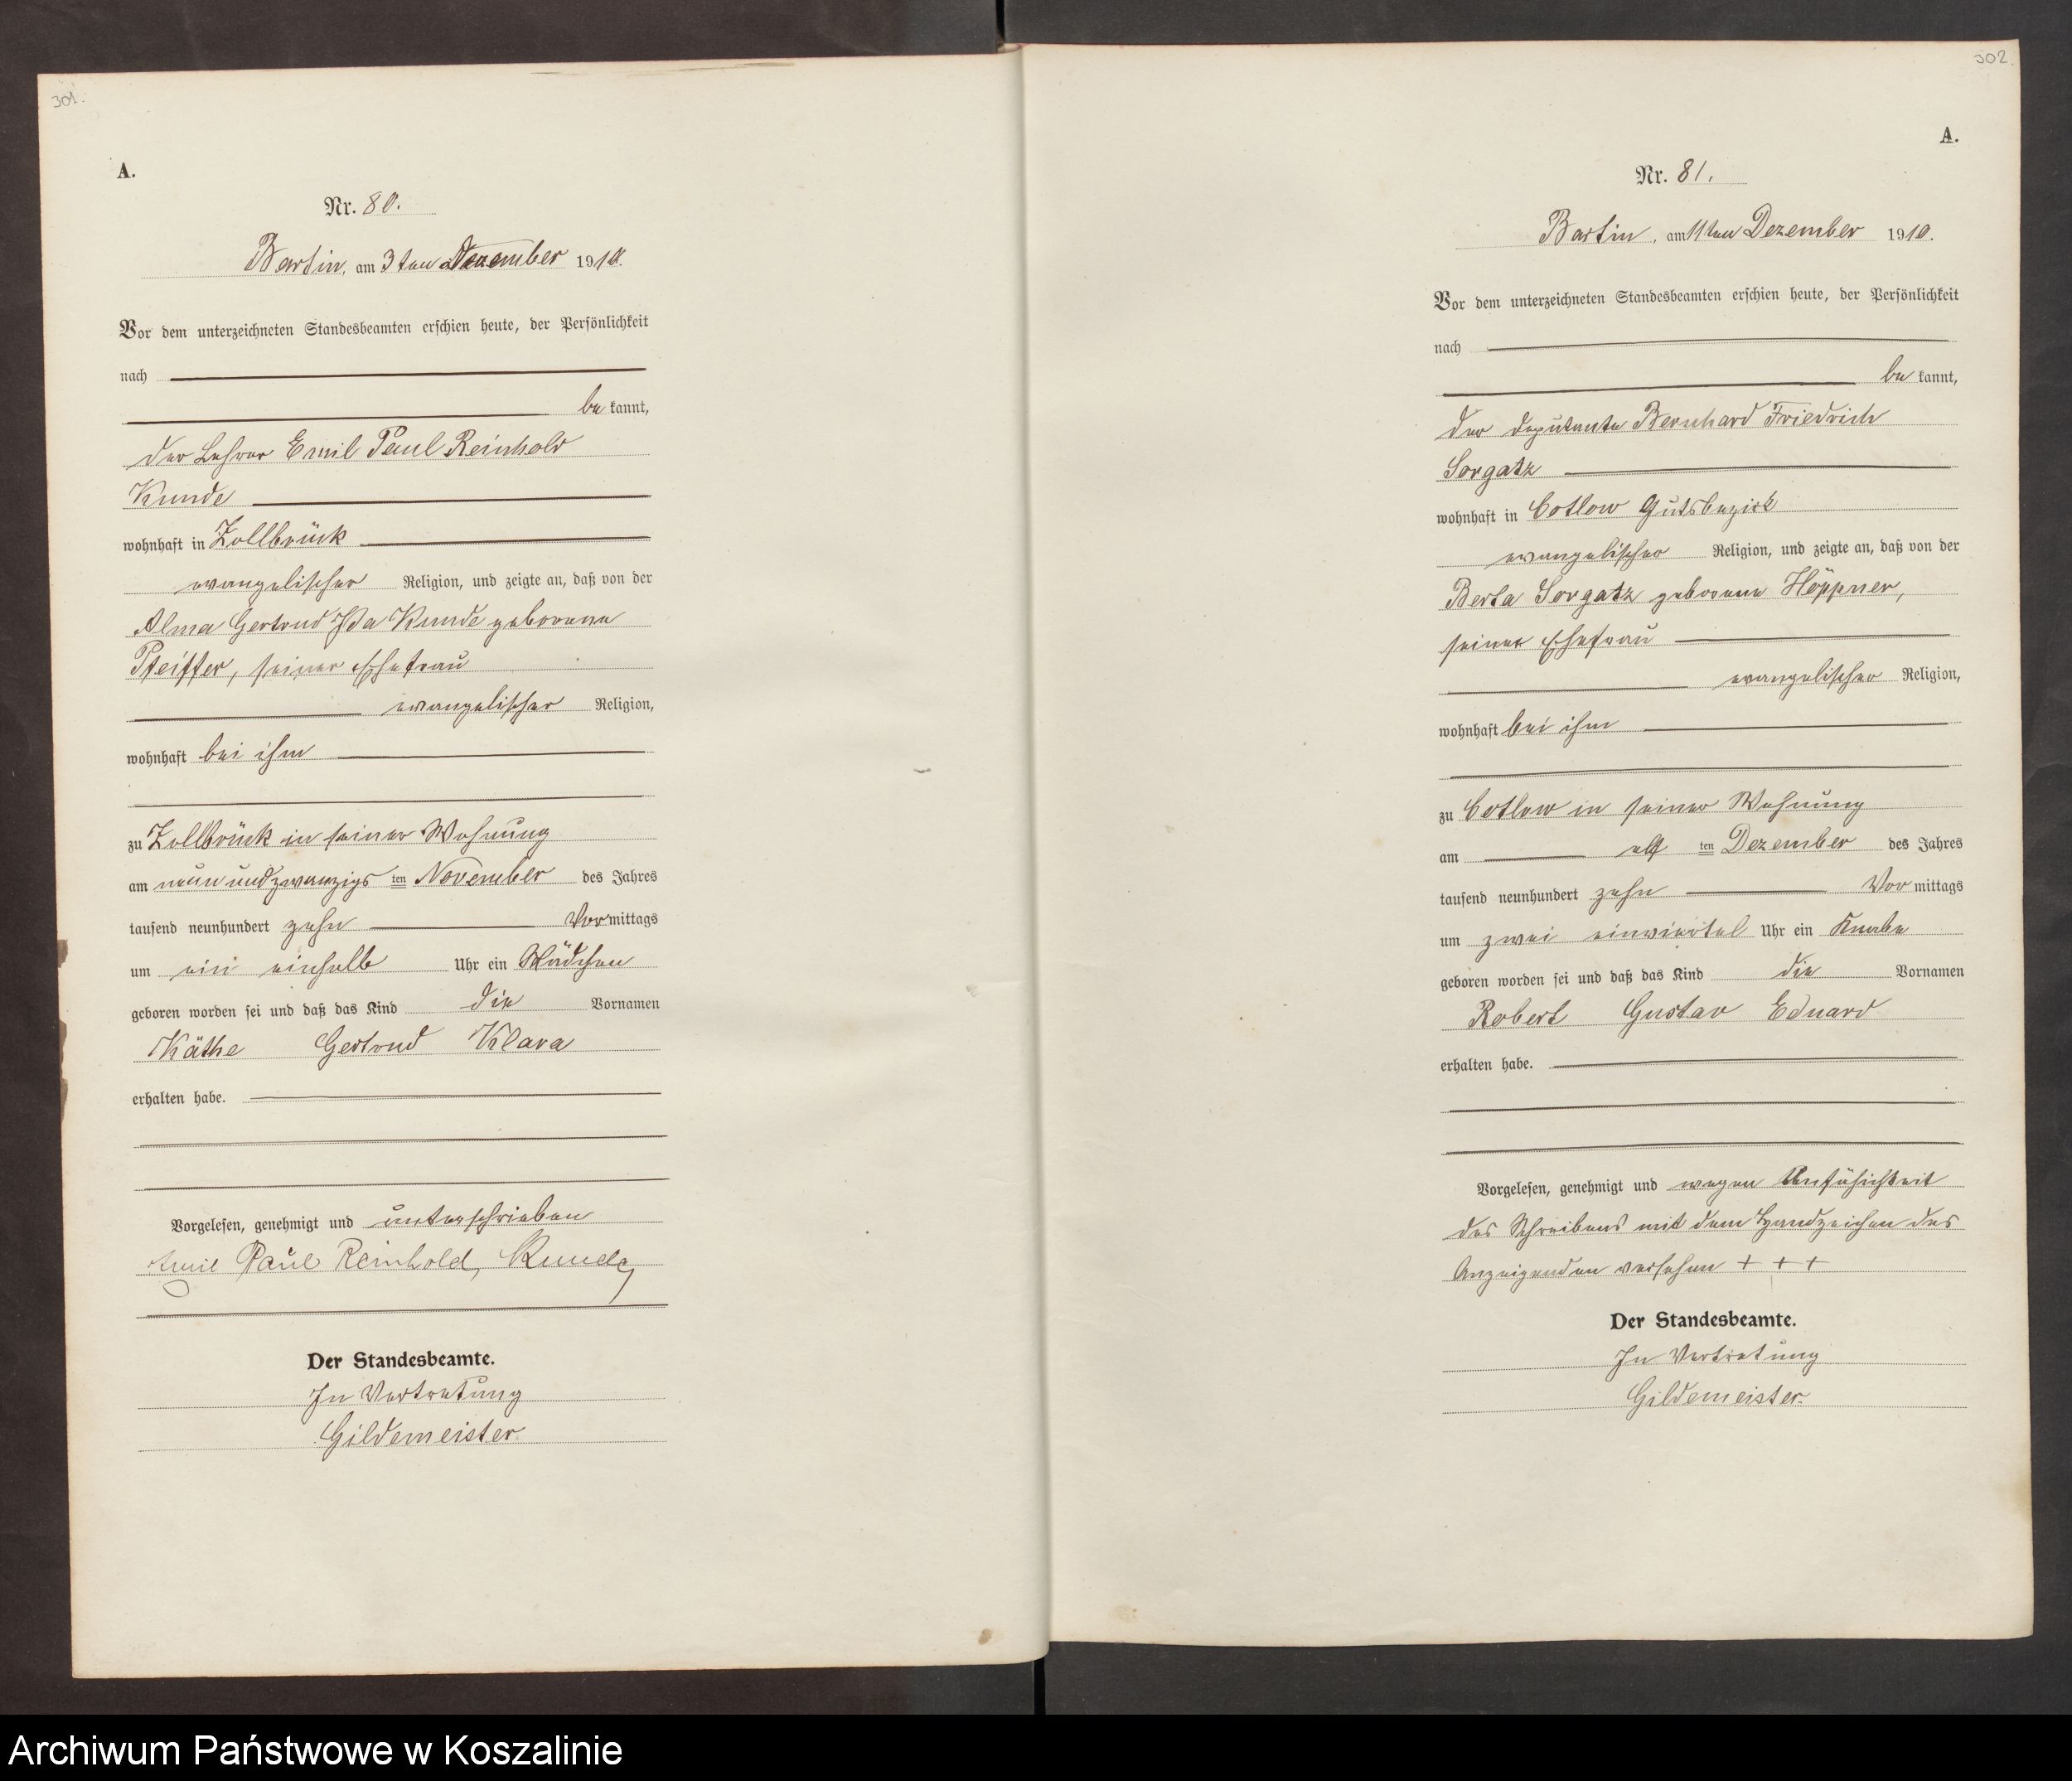 301.
A.
Nr. 80.
Bartin, am 3ten Dezember 1910.
Vor dem unterzeichneten Standesbeamten erschien heute, der Persönlichkeit
nach
be kannt,
der Lehrer Emil Paul Reinhold
Kunde
wohnhaft in Zollbrück
evangelischer Religion, und zeigte an, daß von der
Alma Gertrud Ida Kunde geborene
Pfeiffer, seiner Ehefrau
evangelischer Religion,
wohnhaft bei ihm
zu Zollbrück in seiner Wohnung
am neunundzwanzigs ten November des Jahres
tausend neunhundert zehn Vormittags
um ein einhalb Uhr ein Mädchen
geboren worden sei und daß das Kind die Vornamen
Käthe Gertrud Klara
erhalten habe.
Vorgelesen, genehmigt und unterschrieben
Emil Paul Reinhold, Kunde
Der Standesbeamte.
In Vertretung
Gildemeister.
302.
A.
Nr. 81.
Bartin, am 11ten Dezember 1910.
Vor dem unterzeichneten Standesbeamten erschien heute, der Persönlichkeit
nach
be kannt,
der Deputante Bernhard Friedrich
Sorgatz
wohnhaft in Cotlow Gutsbezirk
evangelischer Religion, und zeigte an, daß von der
Berta Sorgatz geborene Höppner,
seiner Ehefrau
evangelischer Religion,
wohnhaft bei ihm
zu Cotlow in seiner Wohnung
am elf ten Dezember des Jahres
tausend neunhundert zehn Vor mittags
um zwei einviertel Uhr ein Knabe
geboren worden sei und daß das Kind die Vornamen
Robert Gustav Eduard
erhalten habe.
Vorgelesen, genehmigt und wegen Unfähichkeit
des Schreibens mit dem Handzeichen des
Anzeigenden versehen + + +
Der Standesbeamte.
In Vertretung
Gildemeister.
Archiwum Państwowe w Koszalinie